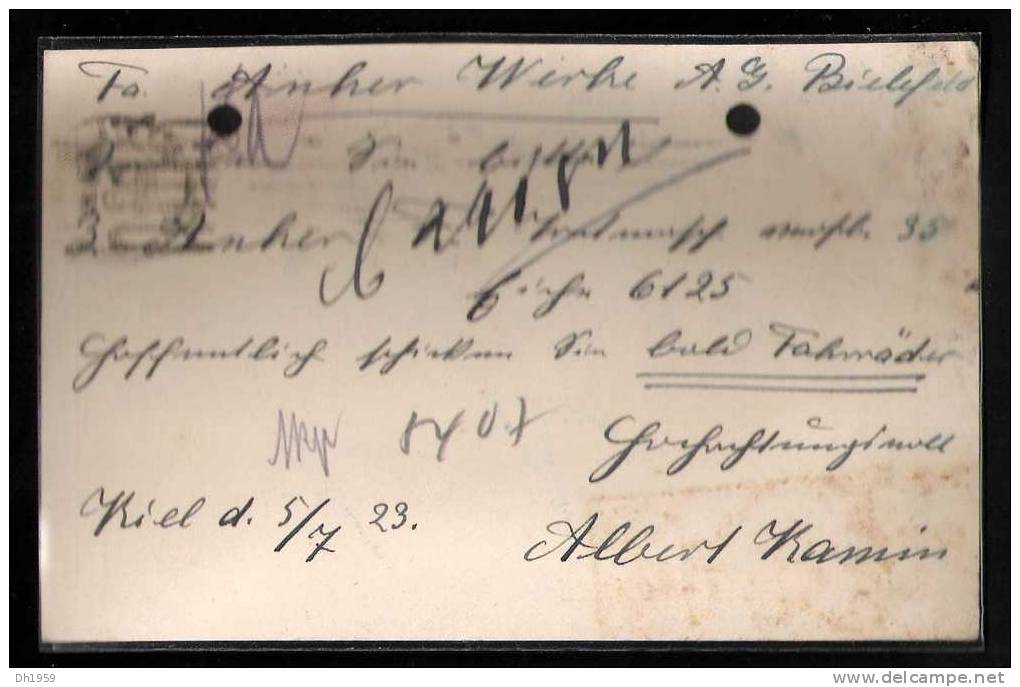 Fa. Anker Werke A.G. Bielefeld
Sie
3 Anker
Eiche 6125
Hoffentlich schicken Sie bald Fahrräder
Hochachtungsvoll
Kiel d. 5/7 23.
Albert Kamin
Dh1959
delcampe.net